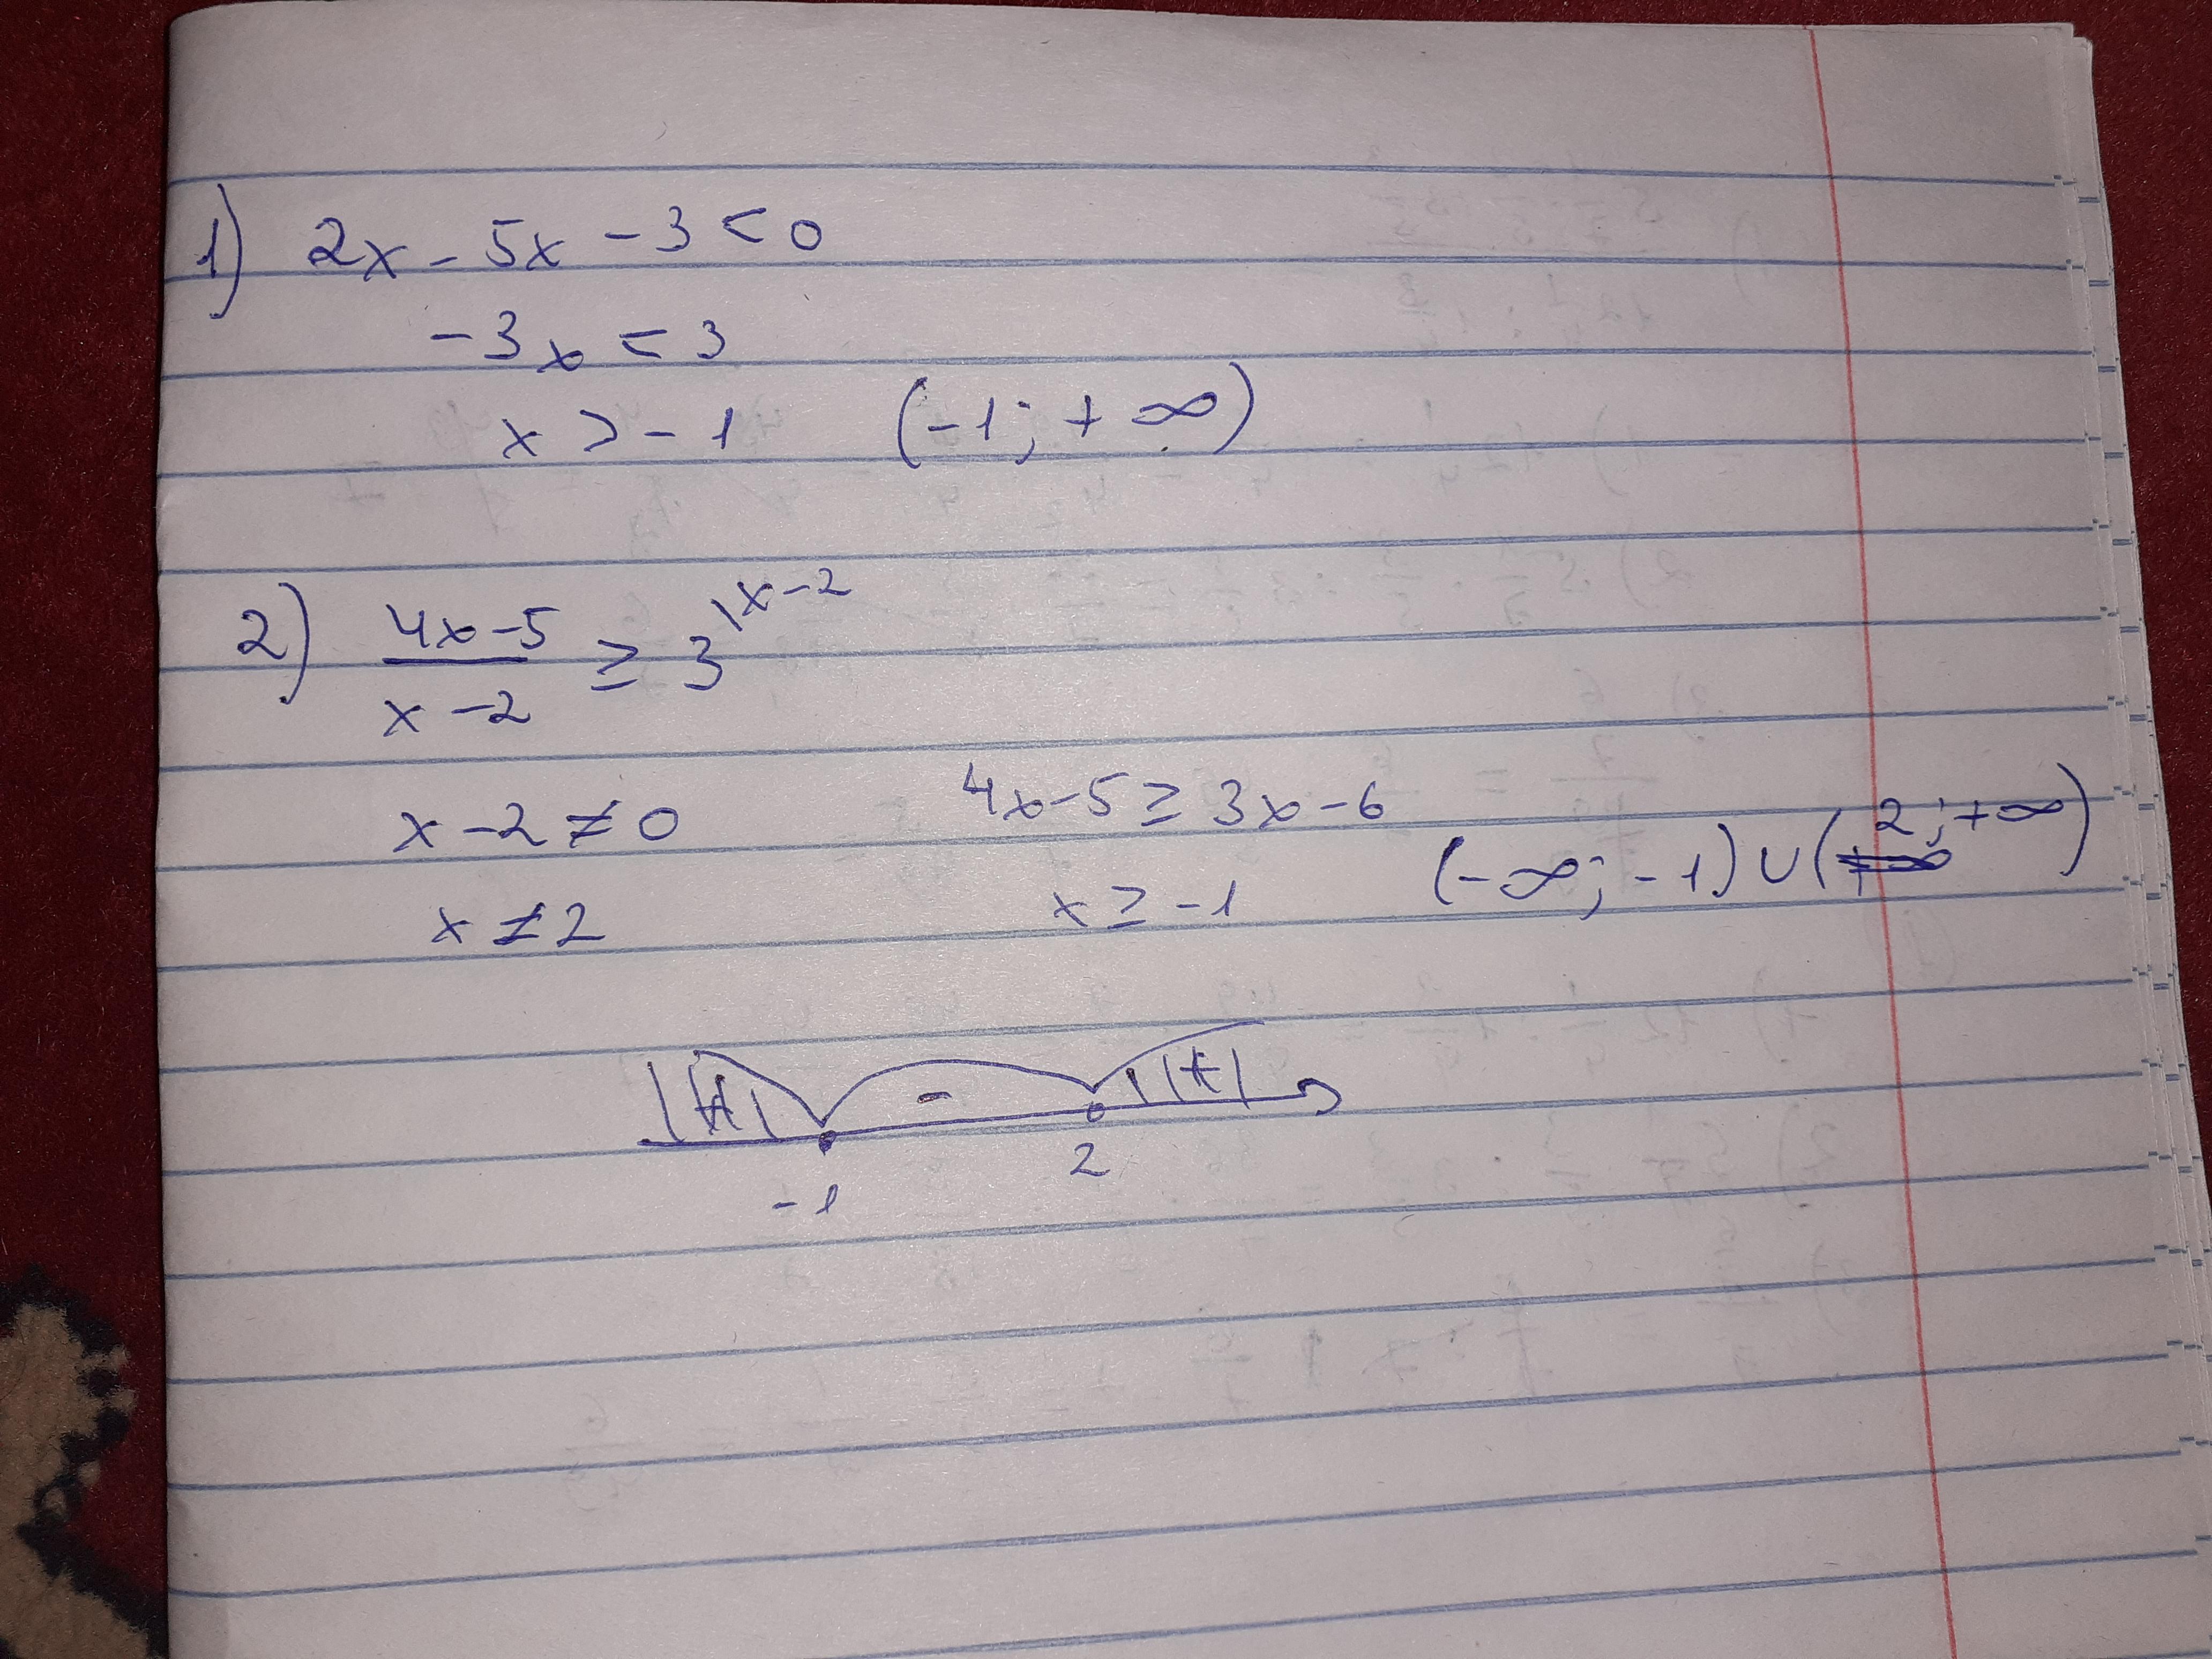 1) 2x - 5x - 3 < 0
-3x < 3
x > -1 (-1; + ∞)
2) (4x-5)/(x-2) ≥ 3 /x-2
x - 2 ≠ 0 4x-5 ≥ 3x-6
x ≠ 2 x ≥ -1 (-∞; -1) ∪ (2; +∞)
+ - +
-1 2